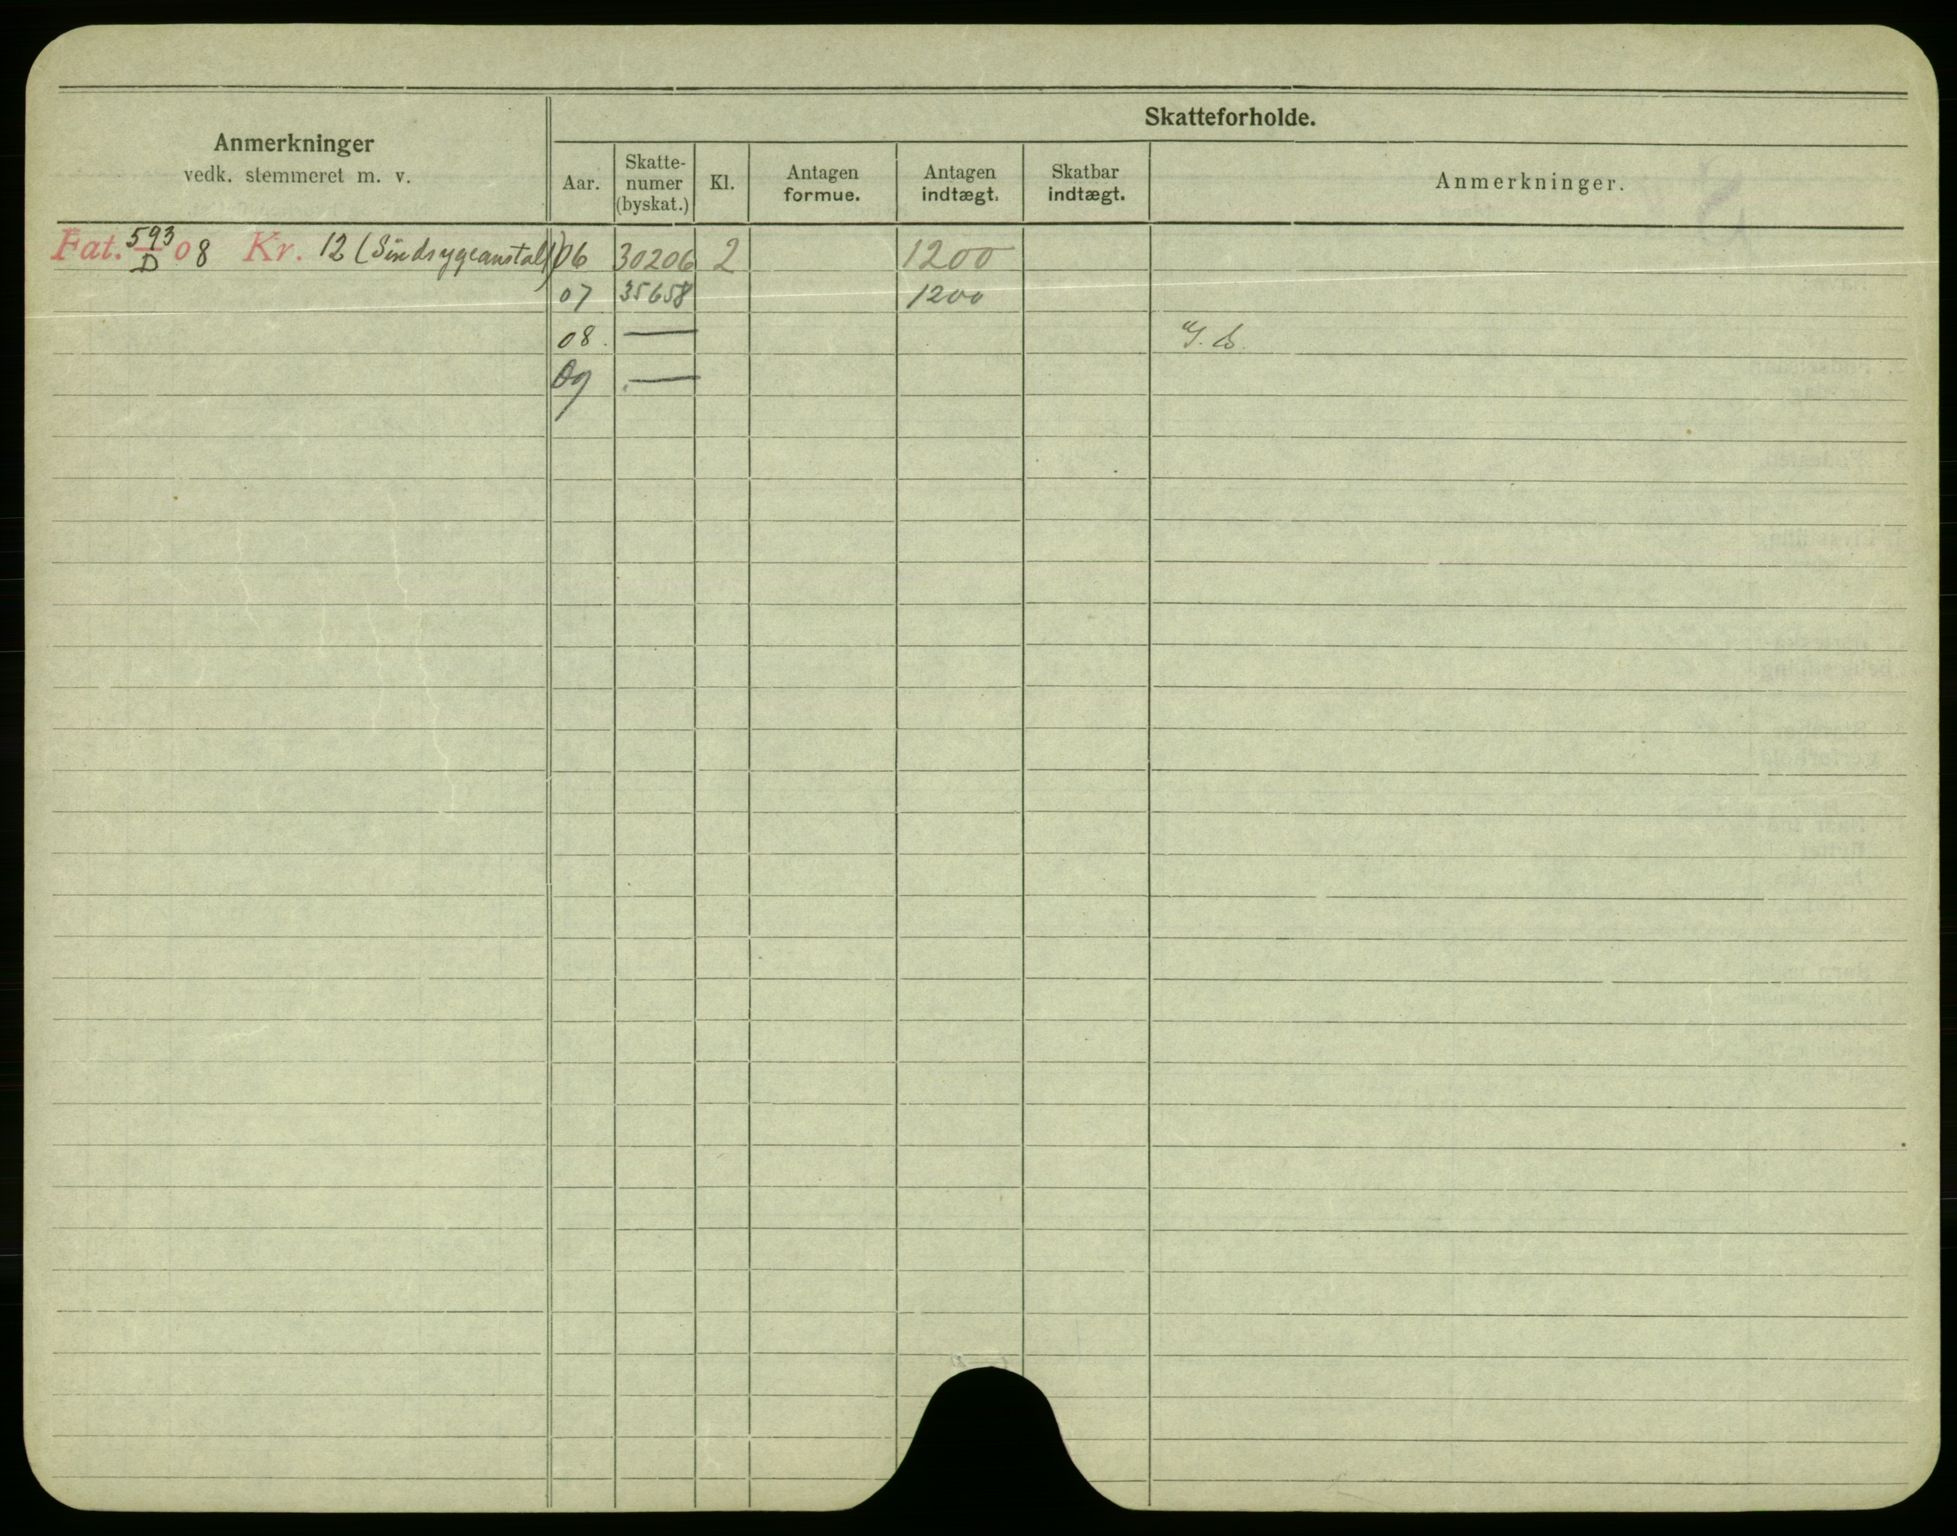 Anmerkninger
vedk. stemmeret m. v.
Skatteforholde.
Aar.
Skatte-
numer
(byskat.)
Kl.
Antagen
formue.
Antagen
indtægt.
Skatbar
indtægt.
Anmerkninger.
Fat. 593/D 08 Kr. 12 (Sindsygeanstalt) 06 30206 2 1200
07 35658 1200
08. —
09 —